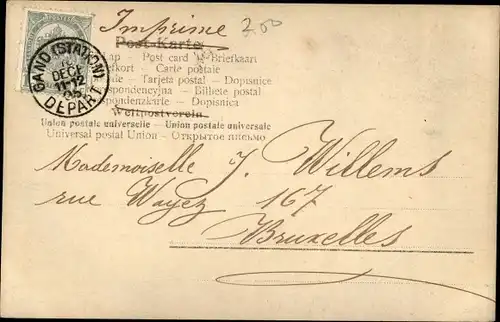 Imprimé
2.00
Post-Karte
Post card
Briefkaart
Carte postale
Tarjeta postal - Dopisnice
Bilhete postal
Dopisnica
Weltpostverein
Union postale universelle - Union postale universale
Universal postal Union - Открытое письмо
GAND (STATION)
DÉC
11-12
05
DÉPART
Mademoiselle J. Willems
rue Wayez 167
Bruxelles